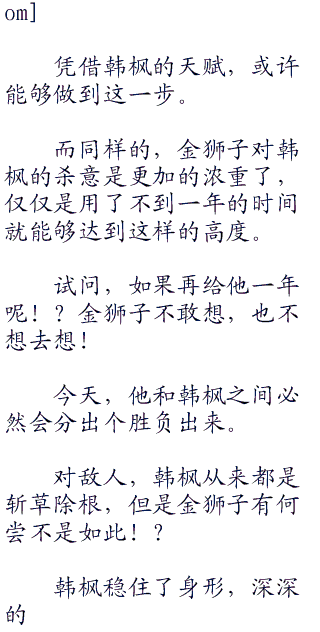 om]
凭借韩枫的天赋，或许
能够做到这一步。
而同样的，金狮子对韩
枫的杀意是更加的浓重了，
仅仅是用了不到一年的时间
就能够达到这样的高度。
试问，如果再给他一年
呢！？金狮子不敢想，也不
想去想！
今天，他和韩枫之间必
然会分出个胜负出来。
对敌人，韩枫从来都是
斩草除根，但是金狮子有何
尝不是如此！？
韩枫稳住了身形，深深
的